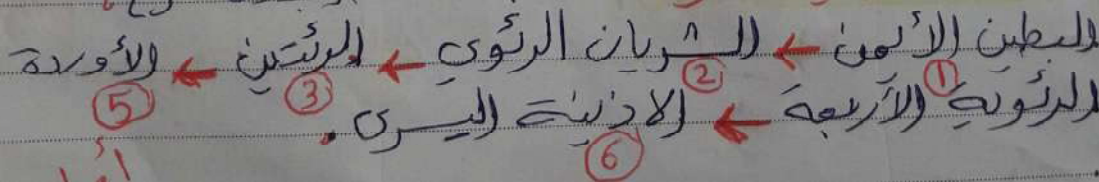 البطين الأيمن ← الشريان الرئوي ← الرئتين ← الأوردة
① ② ③ ⑤
الرئوية الأربعة ← الاذينة اليسرى.
⑥